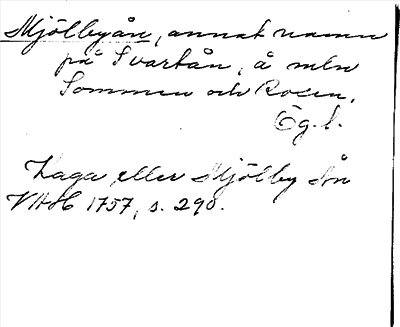 Mjölbyån, annat namn
på Svartån, å mln
Sommen och Roxen.
Ög. l.
Laga eller Mjölby Ån
VHAH 1757, s. 290.